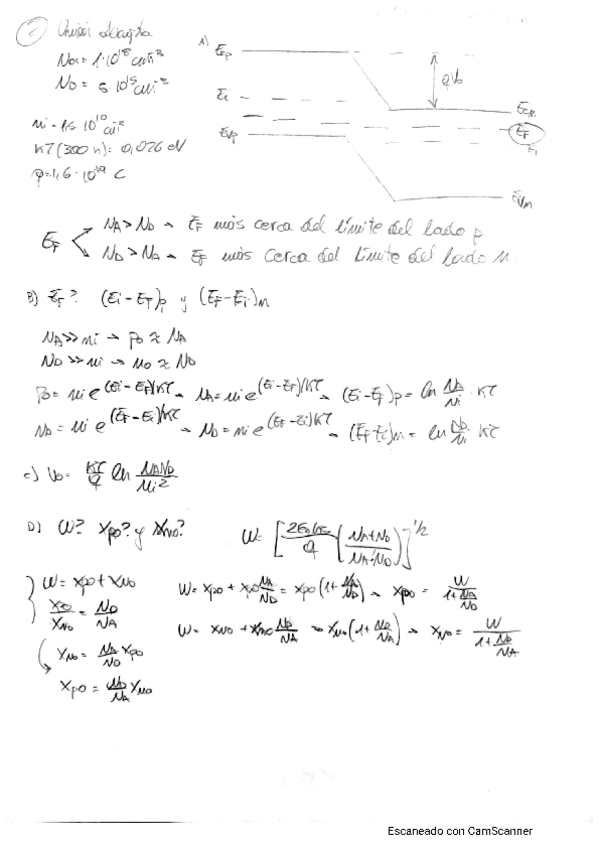 ② Unión abrupta
Na = 1·10¹⁸ cm⁻³
ND = 5·10¹⁵ cm⁻³
ni = 1,5 10¹⁰ cm⁻³
KT (300 K) = 0,026 eV
q = 1,6·10⁻¹⁹ C
A)
Ecp
Ei
Evp
qV₀
Ecn
EF
Ei
Evn
EF
NA > ND → EF más cerca del límite del lado p
ND > NA → EF más cerca del límite del lado n.
B) EF? (Ei - EF)p y (EF - Ei)n
NA >> ni → po ≈ NA
ND >> ni → no ≈ ND
po = ni e^(Ei - EF)/KT → NA = ni e^(Ei - EF)/KT → (Ei - EF)p = ln NA/Ni · KT
no = ni e^(EF - Ei)/KT → ND = ni e^(EF - Ei)/KT → (EF - Ei)n = ln ND/Ni · KT
C) Vo = KT/q ln NAND/Ni²
D) W? Xpo? y Xno? W = [2εoksi/q (NA+ND/NA·ND)]^1/2
W = Xpo + Xno
Xpo/Xno = ND/NA
Xno = NA/ND Xpo
Xpo = ND/NA Xno
W = Xpo + Xpo NA/ND = Xpo (1 + NA/ND) → Xpo = W/1+NA/ND
W = Xno + Xno ND/NA → Xno (1 + ND/NA) → Xno = W/1+ND/NA
Escaneado con CamScanner